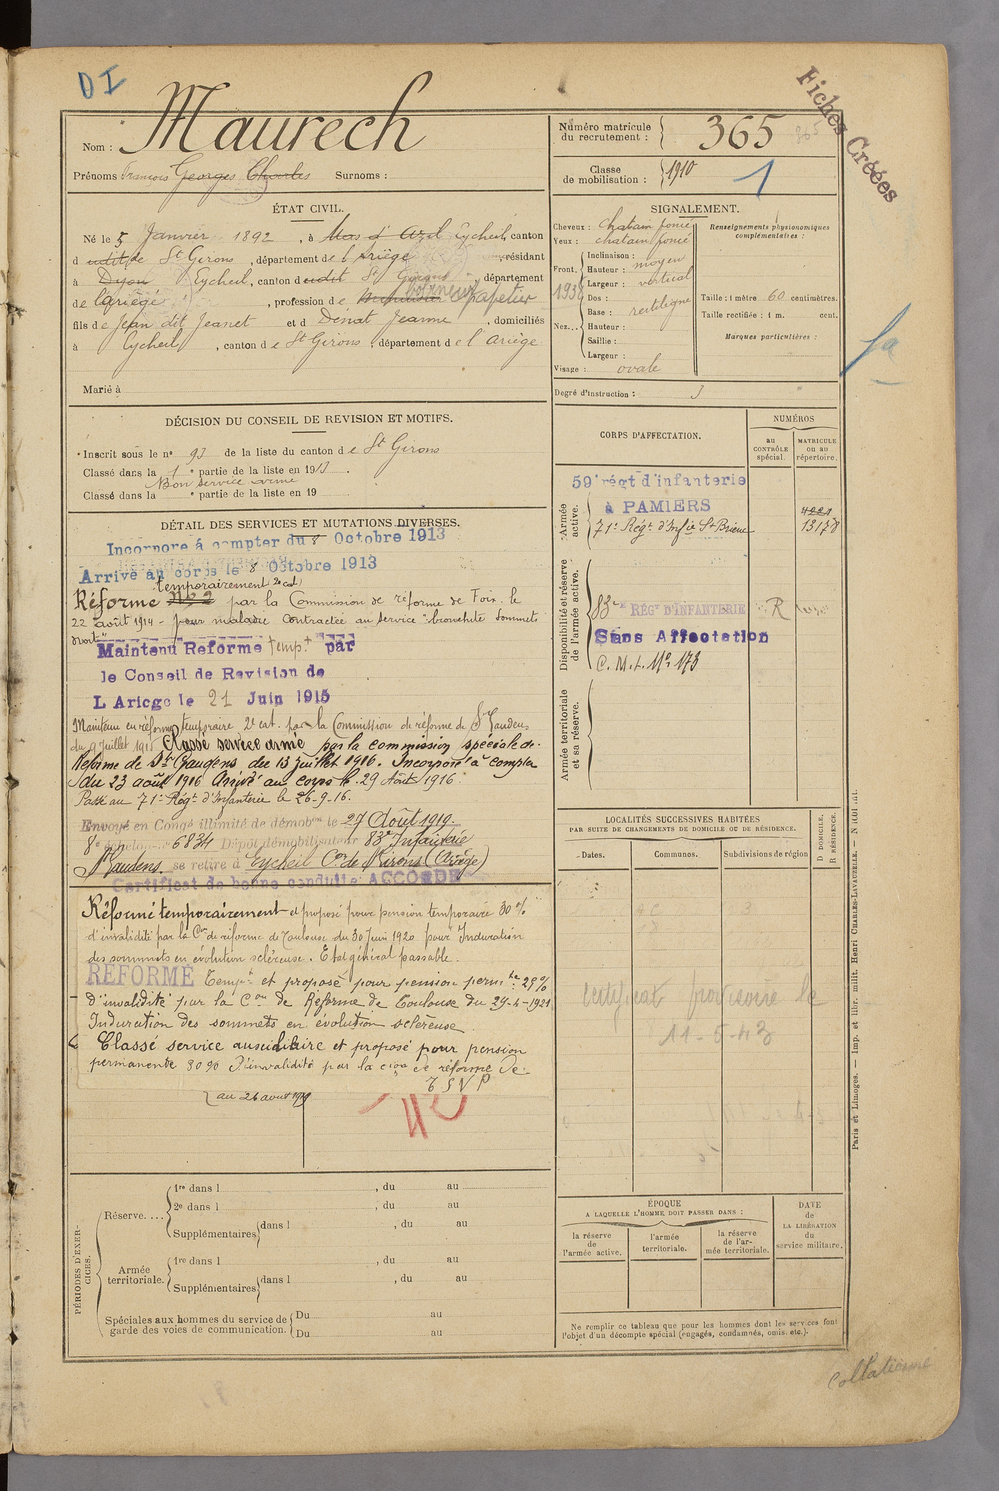 DI
Fiches Créées
Nom : Maurech
Prénoms François Georges Charles Surnoms :
Numéro matricule du recrutement : 365
Classe de mobilisation : 1910
1
ÉTAT CIVIL.
Né le 5 Janvier 1892, à Mas d'Azil Eycheil, canton
d udit de St Girons, département de l'Ariège, résidant
à Eycheil, canton d udit St Girons, département
de l'Ariège, profession de papetier
fils de Jean dit Jeanet et d Dénat Jeanne, domiciliés
à Eycheil, canton de St Girons, département de l'Ariège
Marié à
SIGNALEMENT.
Cheveux : chatain foncé
Yeux : chatain foncé
Front.
Inclinaison :
Hauteur : moyen
Largeur : vertical
1938
Nez...
Dos :
Base : rectiligne
Hauteur :
Saillie :
Largeur :
Visage : ovale
Renseignements physionomiques complémentaires :
Taille : 1 mètre 60 centimètres.
Taille rectifiée : 1 m. cent.
Marques particulières :
Degré d'instruction : 3
DÉCISION DU CONSEIL DE REVISION ET MOTIFS.
Inscrit sous le no 93 de la liste du canton de St Girons
Classé dans la 1e partie de la liste en 1913.
Bon service armé
Classé dans la e partie de la liste en 19
DÉTAIL DES SERVICES ET MUTATIONS DIVERSES.
Incorporé à compter du 8 Octobre 1913
Arrivé au corps le 8 Octobre 1913
temporairement 2e cat
Réformé No 2 par la Commission de réforme de Foix le
22 août 1914 - pour maladie contractée au service "bronchite sommets
droit"
Maintenu Réformé temp.t par
le Conseil de Revision de
L Ariege le 21 Juin 1915
Maintenu en réforme temporaire 2e cat. par la Commission de réforme de St Gaudens
du 9 juillet 1915 Classé service armé par la commission spéciale de
Réforme de St Gaudens du 13 juillet 1916. Incorporé à compter
du 23 août 1916 Arrivé au corps le 29 Août 1916.
Passé au 71e Régt d'Infanterie le 26-9-16.
Envoyé en Congé illimité de démobon le 27 Août 1919.
8e échelon no 6834 Dépôt démobilisateur 83e Infanterie
St Gaudens. se retire à Eycheil Con de St Girons (Ariège)
Certificat de bonne conduite ACCORDÉ
Réformé temporairement et proposé pour pension temporaire 30 %
d'invalidité par la Con de réforme de Toulouse du 30 Juin 1920 pour Induration
des sommets en évolution scléreuse. Etat général passable.
RÉFORMÉ Tempt et proposé pour pension permte 25 %
d'invalidité par la Con de Réforme de Toulouse du 29-4-1921
Induration des sommets en évolution scléreuse
Classé service auxiliaire et proposé pour pension
permanente 30 % d'invalidité par la Cion de réforme de
T S V P
au 26 aout 1919
CORPS D'AFFECTATION.
NUMÉROS
au CONTRÔLE spécial.
MATRICULE OU AU répertoire.
Armée active.
59e régt d'infanterie
à PAMIERS
71e Régt d'Infie St Brieuc 13178
Disponibilité et réserve de l'armée active.
83e RÉGt D'INFANTERIE R
Sans Affectation
C. M. I. No 173
Armée territoriale et sa réserve.
LOCALITÉS SUCCESSIVES HABITÉES
PAR SUITE DE CHANGEMENTS DE DOMICILE OU DE RÉSIDENCE.
Dates.
Communes.
Subdivisions de région
D DOMICILE.
R RÉSIDENCE.
Certificat provisoire le
11-5-43
PÉRIODES D'EXERCICES.
Réserve....
1re dans l , du au
2e dans l , du au
Supplémentaires dans l , du au
Armée territoriale.
1re dans l , du au
Supplémentaires dans l , du au
Spéciales aux hommes du service de garde des voies de communication.
Du au
Du au
ÉPOQUE
A LAQUELLE L'HOMME DOIT PASSER DANS :
la réserve de l'armée active.
l'armée territoriale.
la réserve de l'armée territoriale.
DATE de LA LIBÉRATION du service militaire.
Ne remplir ce tableau que pour les hommes dont les services font
l'objet d'un décompte spécial (engagés, condamnés, omis, etc.).
Paris et Limoges. — Imp. et libr. milit. Henri CHARLES-LAVAUZELLE.
Collationné